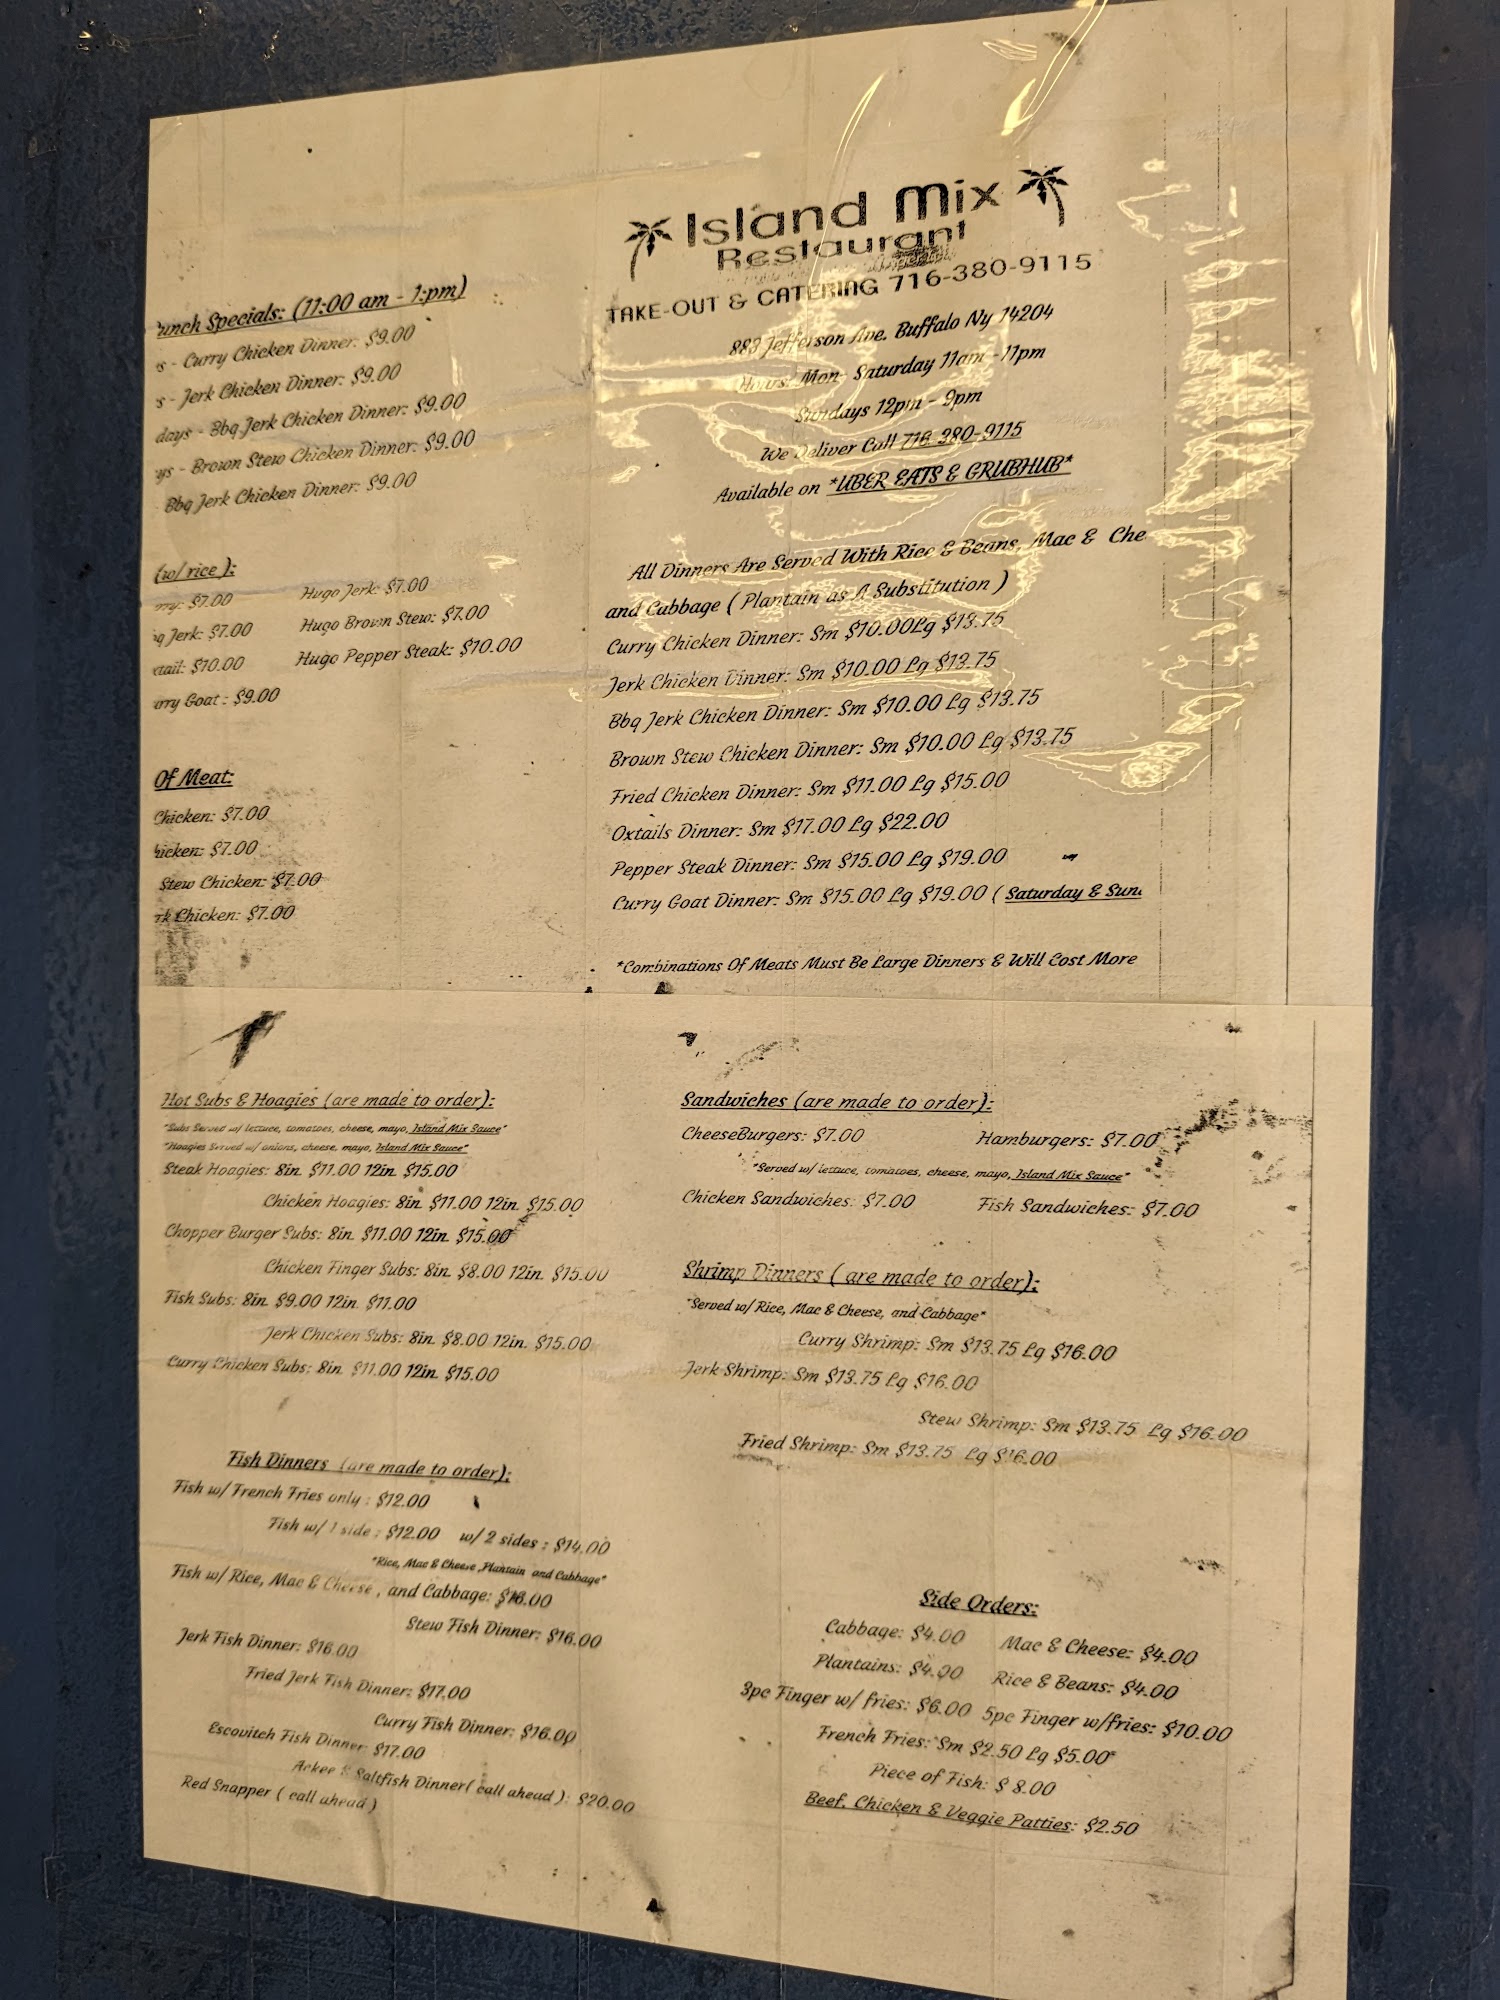 Island Mix
Restaurant
TAKE-OUT & CATERING 716-380-9115
883 Jefferson Ave. Buffalo Ny 14204
Hours: Mon- Saturday 11am -11pm
Sundays 12pm - 9pm
We Deliver Call 716-380-9115
Available on *UBER EATS & GRUBHUB*
Specials: (11:00 am - 1:pm)
- Curry Chicken Dinner: $9.00
- Jerk Chicken Dinner: $9.00
days - Bbq Jerk Chicken Dinner: $9.00
- Brown Stew Chicken Dinner: $9.00
Bbq Jerk Chicken Dinner: $9.00
(w/ rice ):
$7.00 Hugo Jerk: $7.00
Jerk: $7.00 Hugo Brown Stew: $7.00
$10.00 Hugo Pepper Steak: $10.00
Goat : $9.00
Of Meat:
Chicken: $7.00
hicken: $7.00
Stew Chicken: $7.00
rk Chicken: $7.00
All Dinners Are Served With Rice & Beans, Mac & Che
and Cabbage ( Plantain as A Substitution )
Curry Chicken Dinner: Sm $10.00Lg $13.75
Jerk Chicken Dinner: Sm $10.00 Lg $13.75
Bbq Jerk Chicken Dinner: Sm $10.00 Lg $13.75
Brown Stew Chicken Dinner: Sm $10.00 Lg $13.75
Fried Chicken Dinner: Sm $11.00 Lg $15.00
Oxtails Dinner: Sm $17.00 Lg $22.00
Pepper Steak Dinner: Sm $15.00 Lg $19.00
Curry Goat Dinner: Sm $15.00 Lg $19.00 ( Saturday & Sun
*Combinations Of Meats Must Be Large Dinners & Will Cost More
Hot Subs & Hoagies (are made to order):
*Subs Served w/ lettuce, tomatoes, cheese, mayo, Island Mix Sauce*
*Hoagies Served w/ onions, cheese, mayo, Island Mix Sauce*
Steak Hoagies: 8in. $11.00 12in. $15.00
Chicken Hoagies: 8in. $11.00 12in. $15.00
Chopper Burger Subs: 8in. $11.00 12in. $15.00
Chicken Finger Subs: 8in. $8.00 12in. $15.00
Fish Subs: 8in. $9.00 12in. $11.00
Jerk Chicken Subs: 8in. $8.00 12in. $15.00
Curry Chicken Subs: 8in. $11.00 12in. $15.00
Fish Dinners (are made to order):
Fish w/ French Fries only : $12.00
Fish w/ 1 side : $12.00 w/ 2 sides : $14.00
*Rice, Mac & Cheese ,Plantain and Cabbage*
Fish w/ Rice, Mac & Cheese , and Cabbage: $16.00
Stew Fish Dinner: $16.00
Jerk Fish Dinner: $16.00
Fried Jerk Fish Dinner: $17.00
Curry Fish Dinner: $16.00
Escovitch Fish Dinner: $17.00
Ackee & Saltfish Dinner( call ahead ): $20.00
Red Snapper ( call ahead )
Sandwiches (are made to order):
CheeseBurgers: $7.00 Hamburgers: $7.00
*Served w/ lettuce, tomatoes, cheese, mayo, Island Mix Sauce*
Chicken Sandwiches: $7.00 Fish Sandwiches: $7.00
Shrimp Dinners ( are made to order):
*Served w/ Rice, Mac & Cheese, and Cabbage*
Curry Shrimp: Sm $13.75 Lg $16.00
Jerk Shrimp: Sm $13.75 Lg $16.00
Stew Shrimp: Sm $13.75 Lg $16.00
Fried Shrimp: Sm $13.75 Lg $16.00
Side Orders:
Cabbage: $4.00 Mac & Cheese: $4.00
Plantains: $4.00 Rice & Beans: $4.00
3pc Finger w/ fries: $6.00 5pc Finger w/fries: $10.00
French Fries: Sm $2.50 Lg $5.00
Piece of Fish: $ 8.00
Beef, Chicken & Veggie Patties: $2.50